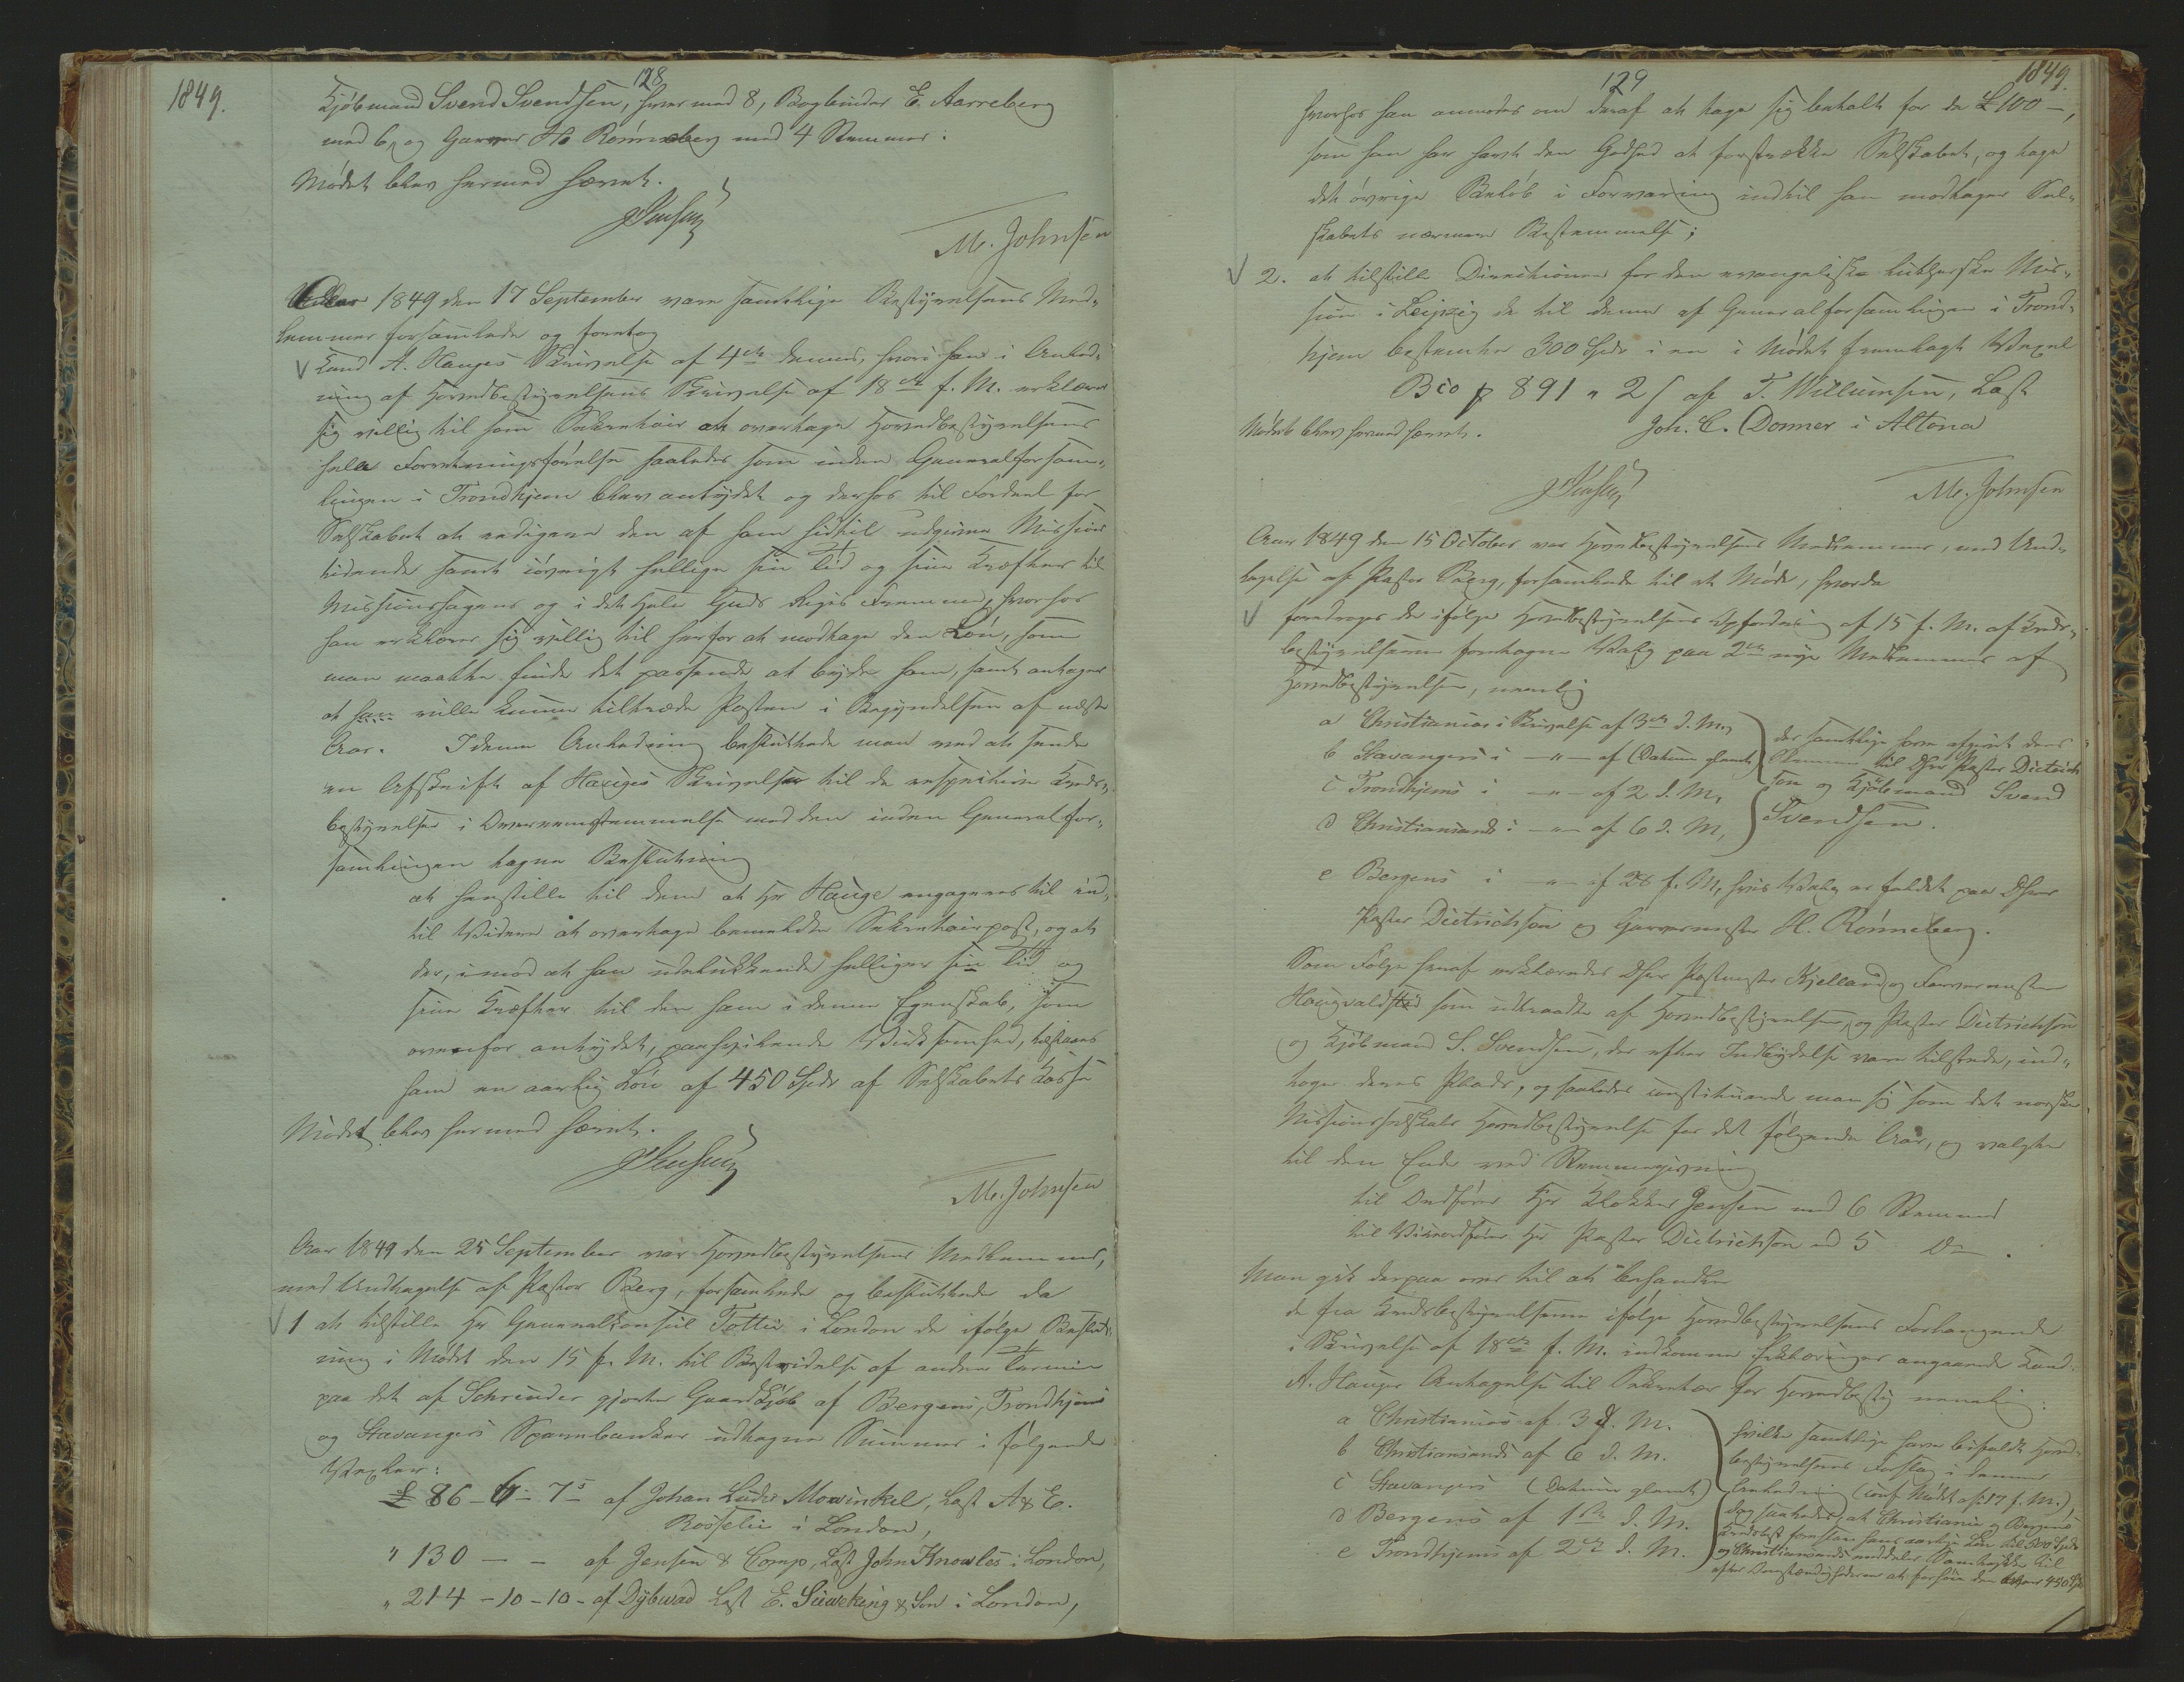 1849.
128
Kjøbmand Svend Svendsen, hver med 8, Bogbinder E. Aarreberg
med 6, og Garver H. Rønneberg med 4 Stemmer.
Mødet blev hermed hævet.
Jensen
M. Johnsen
Aar 1849 den 17 September vare samtlige Bestyrelsens Med-
lemmer forsamlede og foretog
Cand A. Hauges Skrivelse af 4de dennes, hvori han i Anled-
ning af Hovedbestyrelsens Skrivelse af 18de f. M. erklærer
sig villig til som Sekretair at overtage Hovedbestyrelsens
hele Forretningsførelse saaledes som inden Generalforsam-
lingen i Trondhjem blev antydet og derhos til Fordeel for
Selskabet at redigere den af ham hidtil udgivne Missions
tidende samt iøvrigt hellige sin Tid og sine Kræfter til
Missionssagens og i det Hele Guds Riges Fremme, hvorhos
han erklærer sig villig til herfor at modtage den Løn, som
man maatte finde det passende at byde ham, samt antager
at han vilde kunne tiltræde Posten i Begyndelsen af næste
Aar. I denne Anledning besluttede man ved at sende
en Afskrift af Hauges Skrivelse til de respective Kreds-
bestyrelser i Overeensstemmelse med den inden Generalfor-
samlingen tagne Beslutning
at henstille til dem at Hr Hauge engageres til ind-
til Videre at overtage bemeldte Sekretairpost, og at
der, imod at han udelukkende helliger sin Tid og
sine Kræfter til den ham i denne Egenskab, som
ovenfor antydet, paahvilende Virksomhed, tilstaaes
ham en aarlig Løn af 450 Spd af Selskabets Kasse
Mødet blev hermed hævet.
Jensen
M. Johnsen
Aar 1849 den 25 September var Hovedbestyrelsens Medlemmer,
med Undtagelse af Pastor Berg, forsamlede og besluttede da
1 at tilstille Hr Generalkonsul Tottie i London de ifølge Beslut-
ning i Mødet den 15 f. M. til Bestridelse af anden Termin
paa det af Schreuder gjorte Gaardkjøb af Bergens, Trondhjems
og Stavangers Sparebanker udtagne Summer i følgende
Vexler:
£ 86 - 6 - 7 s af Johan Lüder Mowinkel, Last A & E.
Rosselie i London,
" 130 — - af Jensen & Comp, Last John Knowles i London,
" 214 - 10 - 10 - af Dybwad Last E. Sieveking & Son i London,
129
1849.
hvorhos han anmodes om deraf at tage sig betalt for de £ 100 -,
som han har havt den Godhed at forstrække Selskabet, og tage
det øvrige Beløb i Forvaring indtil han modtager Sel-
skabets nærmere Bestemmelse;
2. at tilstille Directionen for den evangelisk lutherske Mis-
sion i Leipzig de til denne af Generalforsamlingen i Trond-
hjem bestemte 300 Spd i en i Mødet fremlagt Vexel
Bco 891 " 2 s af T. Willumsen, Last
Joh. C. Donner i Altona
Mødet blev hermed hævet.
Jensen
M. Johnsen
Aar 1849 den 15 October var Hovedbestyrelsens Medlemmer, med Und-
tagelse af Pastor Berg, forsamlede til et Møde, hvorda
foredroges de ifølge Hovedbestyrelsens Opfordring af 15 f. M. af Kreds-
bestyrelserne foretagne Valg paa 2de nye Medlemmer af
Hovedbestyrelsen, nemlig
a Christianias i Skrivelse af 3de d. M.,
b Stavangers i —"— af (Datum glemt)
c Trondhjems i —"— af 2 d. M,
d Christiansands i —"— af 6 d. M,
der samtlige have afgivet deres
Stemmer til DHrr Pastor Dietrich
son og Kjøbmand Svend
Svendsen.
e Bergens i —"— af 26 f. M, hvis Valg er faldet paa DHrr
Pastor Dietrichson og Garvermester H. Rønneberg.
Som Følge heraf erklæredes DHrr Postmester Kjelland og Farvermester
Haugvaldstad som udtraadte af Hovedbestyrelsen, og Pastor Dietrichson
og Kjøbmand S. Svendsen, der efter Indbydelse vare tilstede, ind-
toge deres Plads, og saaledes constituerede man sig som det norske
Missionsselskabs Hovedbestyrelse for det følgende Aar, og valgte
til den Ende ved Stemmegivning
til Ordfører Hr Klokker Jensen med 6 Stemmer
til Viceordfører Hr Pastor Dietrichson med 5 Do.
Man gik derpaa over til at behandle
de fra Kredsbestyrelserne ifølge Hovedbestyrelsens Forlangende
i Skrivelse af 18de f. M. indkomne Erklæringer angaaende Cand.
A. Hauges Antagelse til Sekretær for Hovedbesty nemlig:
a Christianias af 3 d. M.
b Christiansands af 6 d. M.
c Stavangers (Datum glemt)
d Bergens af 1ste d. M.
e Trondhjems af 2de d. M.
hvilke samtlige have bifaldt Hoved-
bestyrelsens Forslag i denne
Anledning (conf Mødet af 17 f. M.),
dog saaledes, at Christiania og Bergens
Kredsbest foreslaar hans aarlige Løn til 500 Spd
og Christiansands meddeler Samtykke til
efter Omstændighederne at forhøie den over 450 Spd